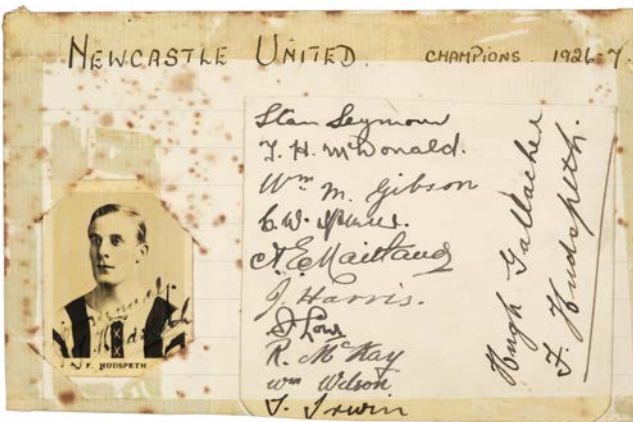 NEWCASTLE UNITED. CHAMPIONS. 1926-7.
Stan Seymour
T. H. McDonald.
Wm. M. Gibson
C. W. Spencer.
A. E. Maitland
J. Harris.
J. Low
R. McKay
Wm Wilson
T. Irwin
Hugh Gallacher
F. Hudspeth.
Hudspeth
F. HUDSPETH